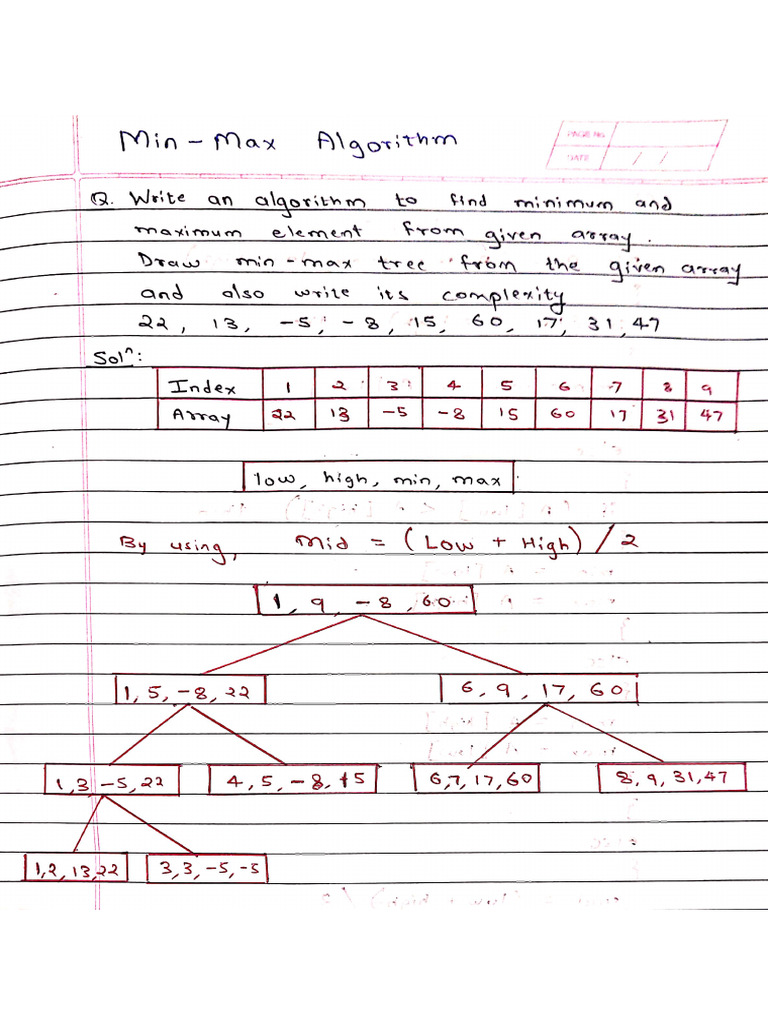 Min - Max Algorithm
PAGE NO.
DATE / /
Q. Write an algorithm to find minimum and
maximum element from given array.
Draw min-max tree from the given array
and also write its complexity
22, 13, -5, -8, 15, 60, 17, 31, 47
Solⁿ:
Index 1 2 3 4 5 6 7 8 9
Array 22 13 -5 -8 15 60 17 31 47
low, high, min, max
By using, Mid = (Low + High) / 2
1, 9, -8, 60
1, 5, -8, 22 6, 9, 17, 60
1, 3, -5, 22 4, 5, -8, 15 6, 7, 17, 60 8, 9, 31, 47
1, 2, 13, 22 3, 3, -5, -5